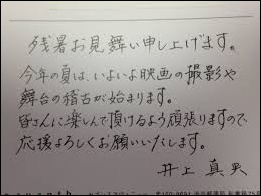 残暑お見舞い申し上げます。
今年の夏は、いよいよ映画の撮影や
舞台の稽古が始まります。
皆さんに楽しんで頂けるよう頑張りますので
応援よろしくお願いいたします。
井上 真央